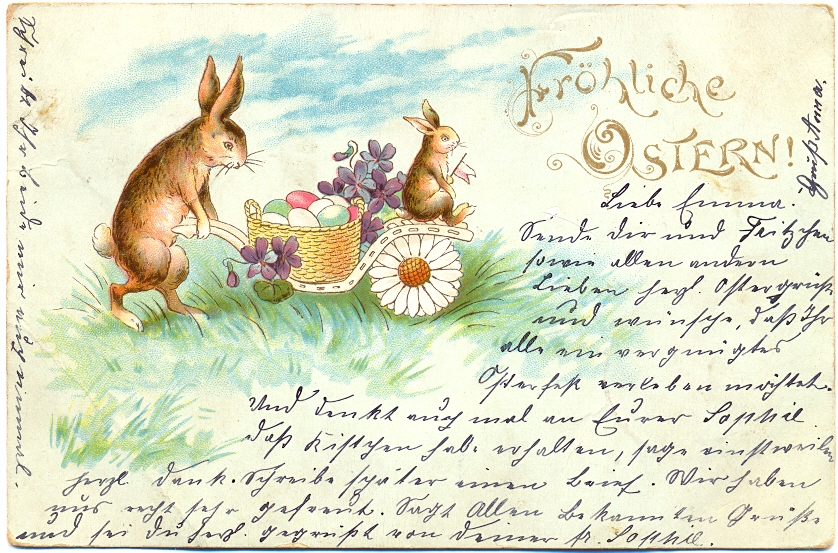 Fröhliche
OSTERN!
Liebe Emma.
Sende Dir und Fritzchen
sowie allen andern
Lieben herzl. Ostergrüße
und wünsche, daß Ihr
alle ein vergnügtes
Osterfest verleben möchtet.
Und denkt auch mal an Eurer Sophie
daß Kistchen hab. erhalten, sage einstweilen
herzl. Dank. Schreibe später einen Brief. Wir haben
uns recht sehr gefreut. Sagt Allen Bekannten Grüße
und sei Du herzl. gegrüßt von Deiner fr. Sophie.
Gruß Anna.